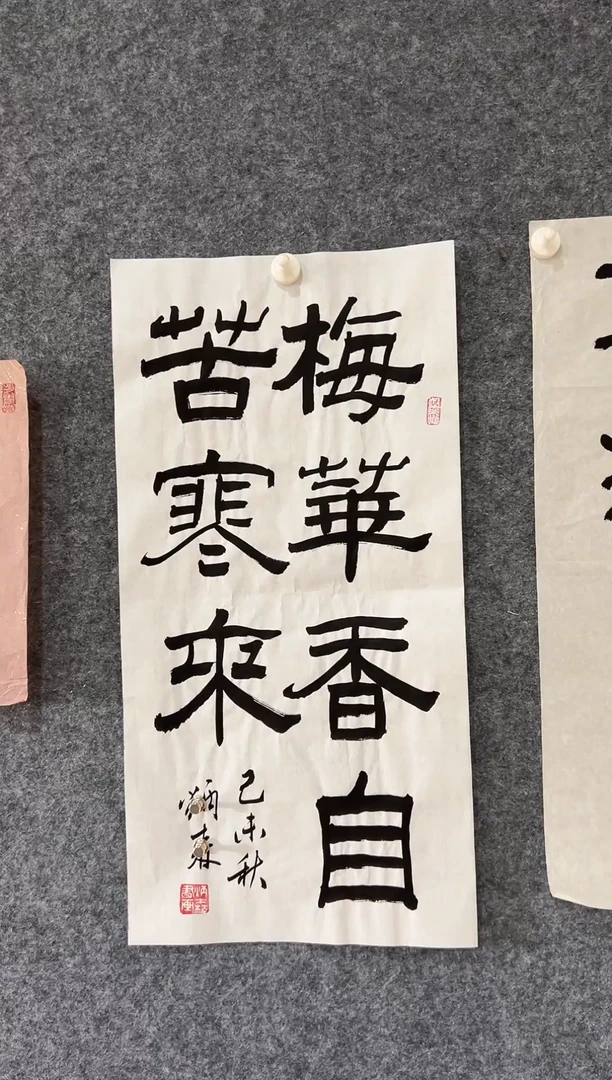 梅華香自
苦寒來
己未秋
炳森